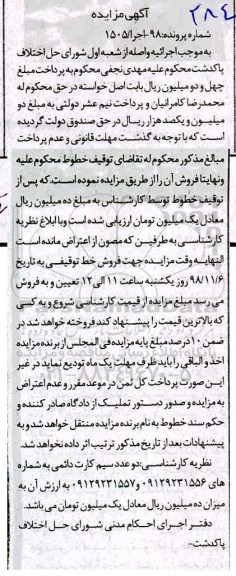 آگهی مزایده
۲۸۴
شماره پرونده: ۹۸-اجرا/۱۵۰۵
به موجب اجرائیه واصله از شعبه اول شورای حل اختلاف
پاکدشت محکوم علیه مهدی نجفی محکوم به پرداخت مبلغ
چهل و دو میلیون ریال بابت اصل خواسته در حق محکوم له
محمدرضا کامرانیان و پرداخت نیم عشر دولتی به مبلغ دو
میلیون و یکصد هزار ریال در حق صندوق دولت گردیده
است که با توجه به گذشت مهلت قانونی و عدم پرداخت
مبالغ مذکور محکوم له تقاضای توقیف خطوط محکوم علیه
ونهایتا فروش آن را از طریق مزایده نموده است، که پس از
توقیف خطوط توسط کارشناس به مبلغ ده میلیون ریال
معادل یک میلیون تومان ارزیابی شده است وبا ابلاغ نظریه
کارشناسی به طرفین که مصون از اعتراض مانده است
النهایه وقت مزایده جهت فروش خط توقیفی به تاریخ
۹۸/۱۱/۶ روز یکشنبه ساعت ۱۱ الی ۱۲ تعیین و به فروش
می رسد مبلغ مزایده از قیمت کارشناسی شروع و به کسی
که بالاترین قیمت را پیشنهاد کند فروخته خواهد شد در
ضمن ۱۰ درصد مبلغ پایه مزایده فی المجلس از برنده مزایده
اخذ و الباقی را باید ظرف مهلت یک ماه تودیع نماید در غیر
این صورت پرداخت کل ثمن در موعد مقرر و عدم اعتراض
به مزایده و صدور دستور تملیک از دادگاه صادر کننده و
حکم سند خطوط به نام برنده مزایده منتقل خواهد شد و به
پیشنهادات بعد از تاریخ مذکور ترتیب اثر داده نخواهد شد.
نظریه کارشناسی: دو عدد سیم کارت دائمی به شماره
های ۰۹۱۲۹۲۳۱۵۵۶ و ۰۹۱۲۹۲۳۱۵۵۷ به ارزش آن به
میزان ده میلیون ریال معادل یک میلیون تومان می باشد.
دفتر اجرای احکام مدنی شورای حل اختلاف
پاکدشت-